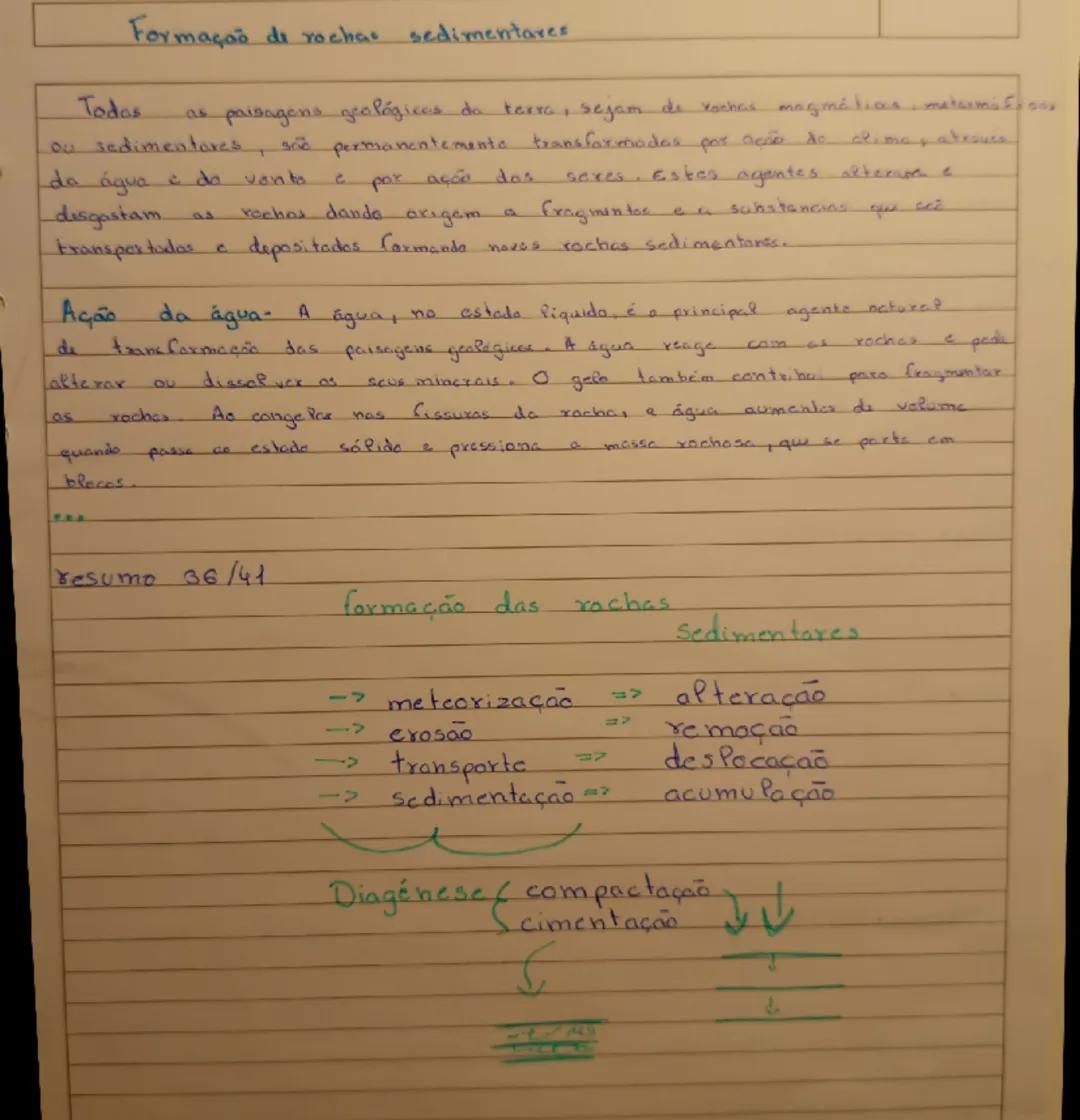 Formação de rochas sedimentares
Todas as paisagens geológicas da terra, sejam de rochas magmáticas, metamórficas
ou sedimentares, são permanentemente transformadas por ação do clima, através
da água e do vento e por ação dos seres. Estes agentes alteram e
desgastam as rochas dando origem a fragmentos e a substâncias que são
transportadas e depositadas formando novas rochas sedimentares.
Ação da água- A água, no estado líquido, é o principal agente natural
de transformação das paisagens geológicas. A água reage com as rochas e pode
alterar ou dissolver os seus minerais. O gelo também contribui para fragmentar
as rochas. Ao congelar nas fissuras da rocha, a água aumenta de volume
quando passa ao estado sólido e pressiona a massa rochosa, que se parte em
blocos.
...
resumo 36/41
formação das rochas
sedimentares
-> meteorização => alteração
-> erosão => remoção
-> transporte => deslocação
-> sedimentação => acumulação
Diagénese { compactação
cimentação